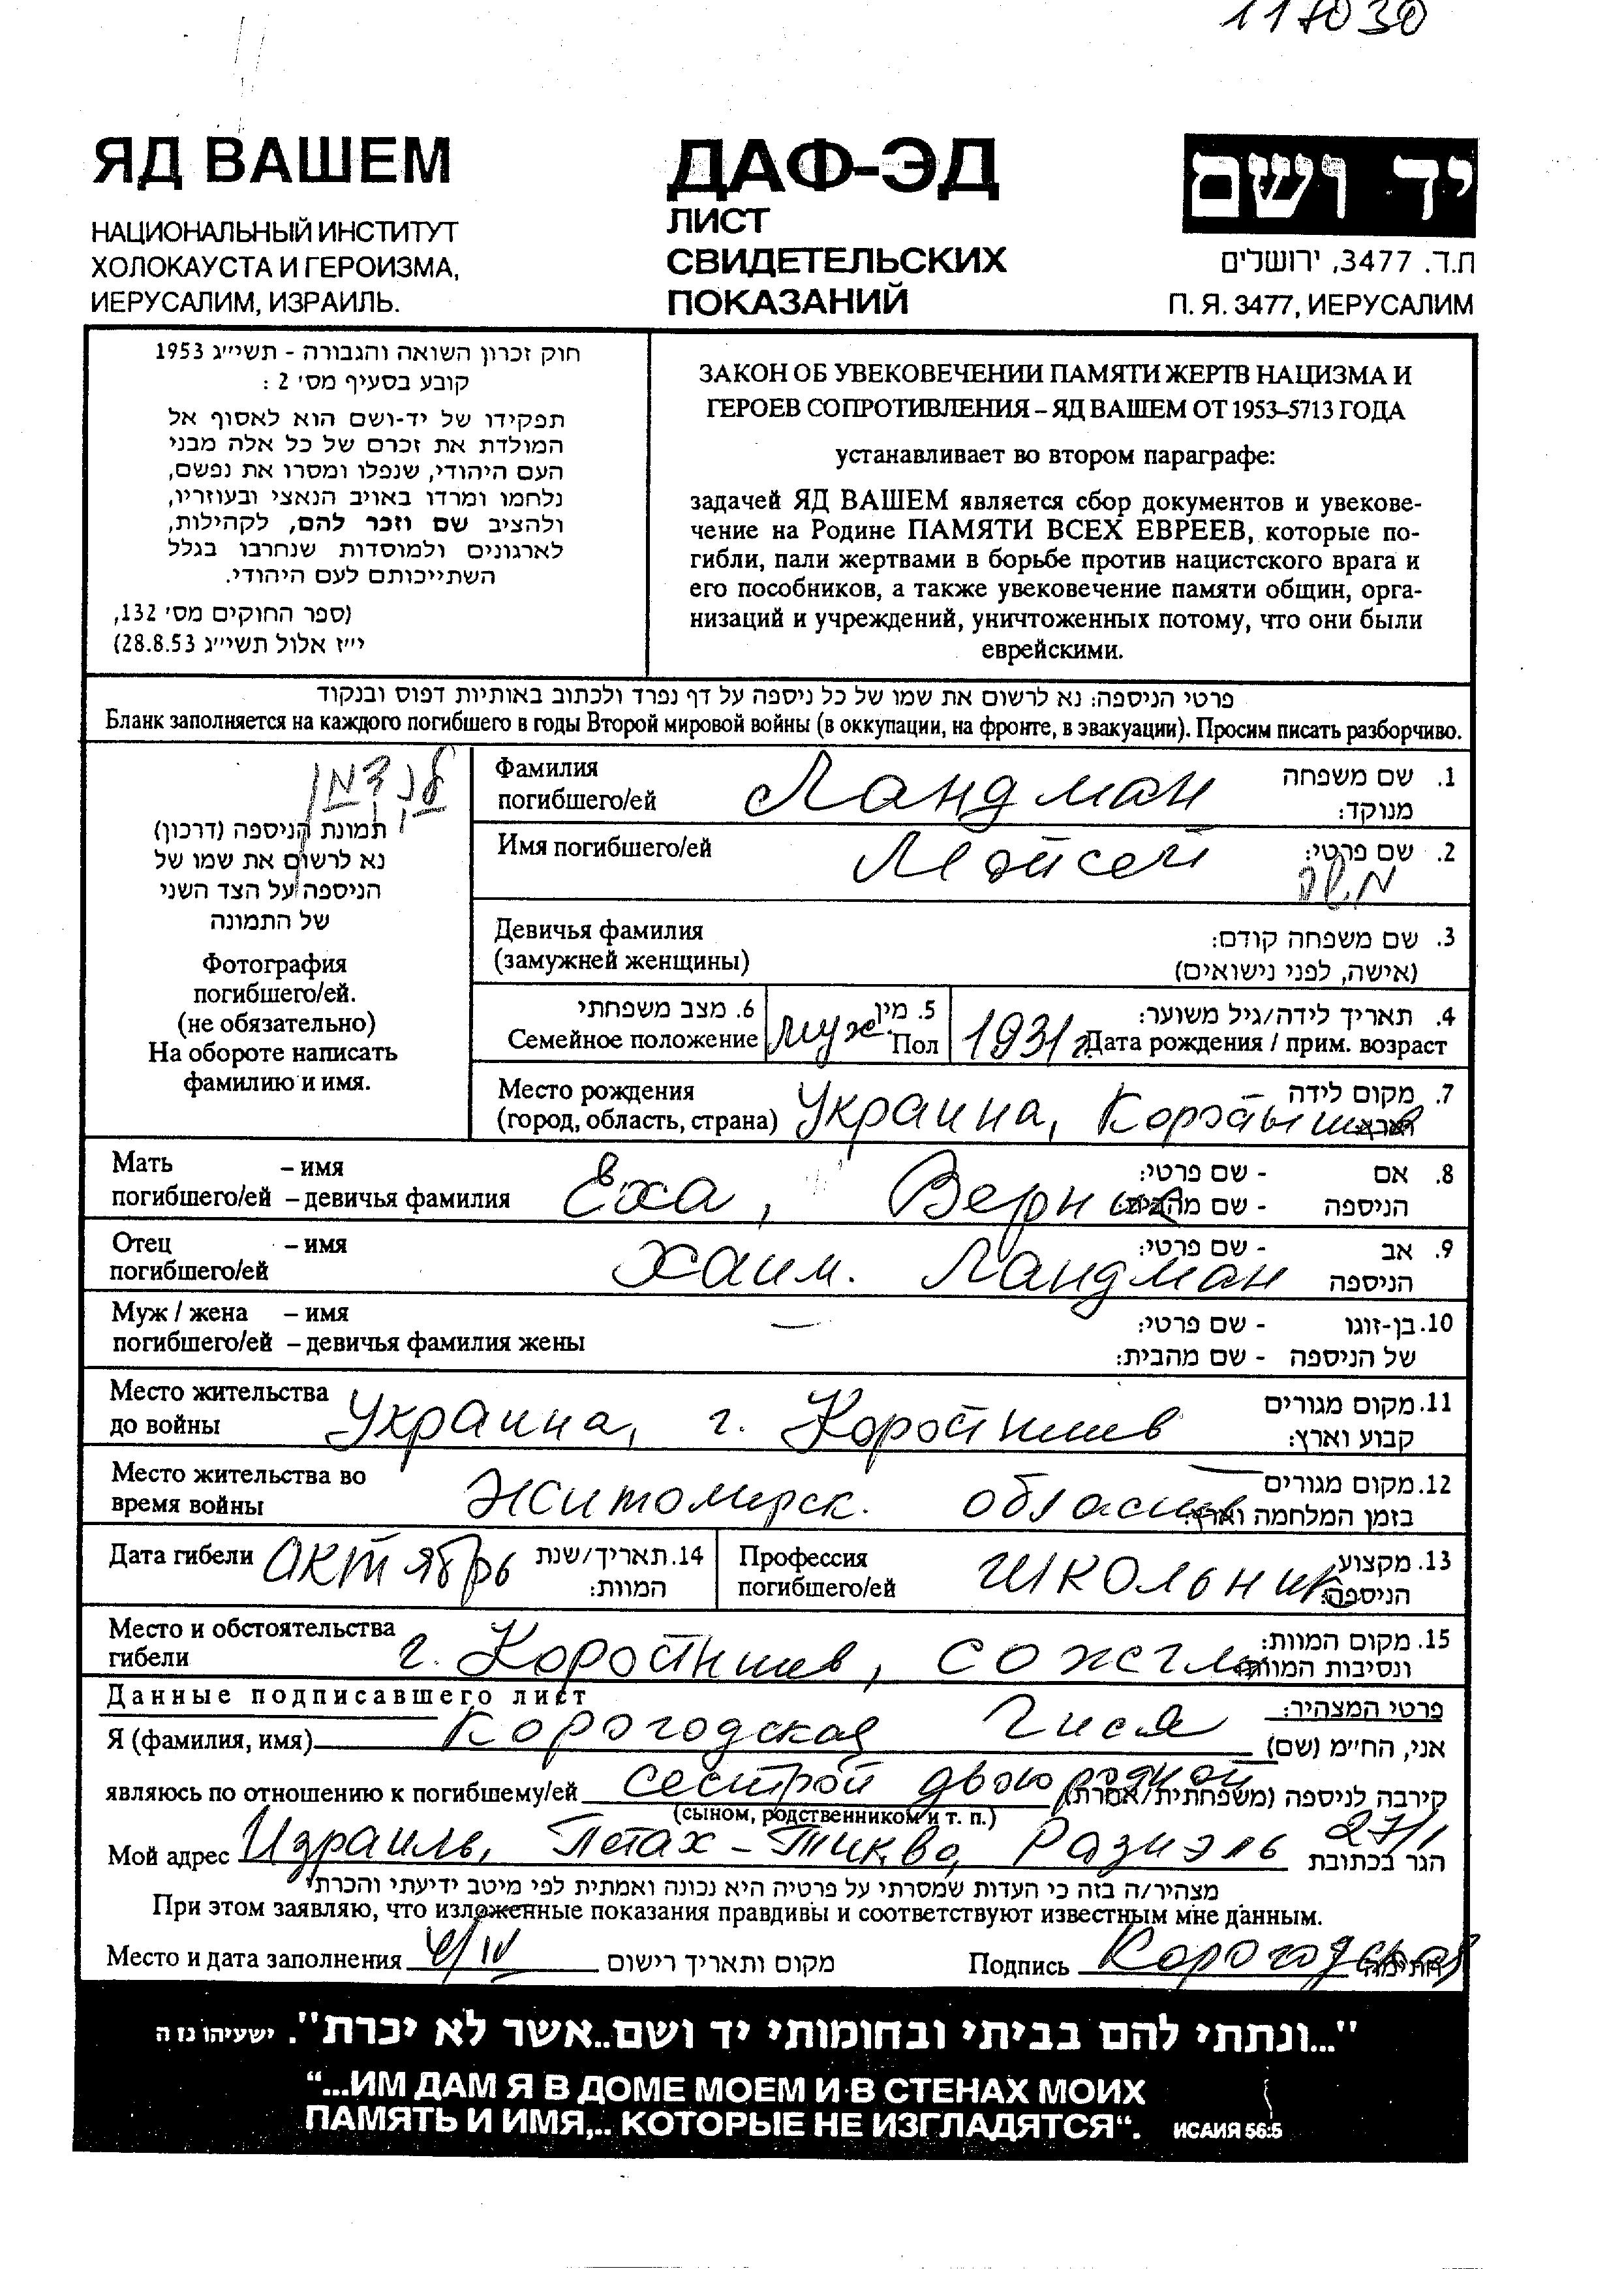 117030
ЯД ВАШЕМ
НАЦИОНАЛЬНЫЙ ИНСТИТУТ
ХОЛОКАУСТА И ГЕРОИЗМА,
ИЕРУСАЛИМ, ИЗРАИЛЬ.
ДАФ-ЭД
ЛИСТ
СВИДЕТЕЛЬСКИХ
ПОКАЗАНИЙ
יד ושם
ת.ד. 3477, ירושלים
П. Я. 3477, ИЕРУСАЛИМ
חוק זכרון השואה והגבורה - תשי״ג 1953
קובע בסעיף מס׳ 2 :
תפקידו של יד-ושם הוא לאסוף אל
המולדת את זכרם של כל אלה מבני
העם היהודי, שנפלו ומסרו את נפשם,
נלחמו ומרדו באויב הנאצי ובעוזריו,
ולהציב שם וזכר להם, לקהילות,
לארגונים ולמוסדות שנחרבו בגלל
השתייכותם לעם היהודי.
(ספר החוקים מס׳ 132,
י״ז אלול תשי״ג 28.8.53)
ЗАКОН ОБ УВЕКОВЕЧЕНИИ ПАМЯТИ ЖЕРТВ НАЦИЗМА И
ГЕРОЕВ СОПРОТИВЛЕНИЯ – ЯД ВАШЕМ ОТ 1953–5713 ГОДА
устанавливает во втором параграфе:
задачей ЯД ВАШЕМ является сбор документов и увекове-
чение на Родине ПАМЯТИ ВСЕХ ЕВРЕЕВ, которые по-
гибли, пали жертвами в борьбе против нацистского врага и
его пособников, а также увековечение памяти общин, орга-
низаций и учреждений, уничтоженных потому, что они были
еврейскими.
פרטי הניספה: נא לרשום את שמו של כל ניספה על דף נפרד ולכתוב באותיות דפוס ובנקוד
Бланк заполняется на каждого погибшего в годы Второй мировой войны (в оккупации, на фронте, в эвакуации). Просим писать разборчиво.
לנדמן
תמונת הניספה (דרכון)
נא לרשום את שמו של
הניספה על הצד השני
של התמונה
Фотография
погибшего/ей.
(не обязательно)
На обороте написать
фамилию и имя.
Фамилия
погибшего/ей Ландман
1. שם משפחה
מנוקד:
Имя погибшего/ей Мойсей
2. שם פרטי:
משה
Девичья фамилия
(замужней женщины)
3. שם משפחה קודם:
(אישה, לפני נישואים)
6. מצב משפחתי
Семейное положение
5. מין
муж. Пол
4. תאריך לידה/גיל משוער:
1931 г. Дата рождения / прим. возраст
Место рождения
(город, область, страна) Украина,
7. מקום לידה
Мать – имя
погибшего/ей – девичья фамилия Еха,
8. אם - שם פרטי:
הניספה - שם מהבית:
Отец – имя
погибшего/ей Хаим. Ландман
9. אב - שם פרטי:
הניספה
Муж / жена – имя
погибшего/ей – девичья фамилия жены —
10. בן-זוגו - שם פרטי:
של הניספה - שם מהבית:
Место жительства
до войны Украина, г. Коростышев
11. מקום מגורים
קבוע וארץ:
Место жительства во
время войны Житомирск. область
12. מקום מגורים
בזמן המלחמה וארץ:
Дата гибели октябрь
14. תאריך/שנת
המוות:
Профессия
погибшего/ей школьник
13. מקצוע
הניספה:
Место и обстоятельства
гибели г. Коростышев, сожгли
15. מקום המוות:
ונסיבות המוות:
Данные подписавшего лист
פרטי המצהיר:
Я (фамилия, имя) Корогодская Гися
אני, הח״מ (שם)
являюсь по отношению к погибшему/ей сестрой двоюродной
קירבה לניספה (משפחתית/אחרת)
(сыном, родственником и т. п.)
Мой адрес Израиль, Петах-Тиква, Разиэль 27/1
הגר בכתובת
מצהיר/ה בזה כי העדות שמסרתי על פרטיה היא נכונה ואמתית לפי מיטב ידיעתי והכרתי
При этом заявляю, что изложенные показания правдивы и соответствуют известным мне данным.
Место и дата заполнения 4/IV מקום ותאריך רישום
Подпись Корогодская חתימה
"...ונתתי להם בביתי ובחומותי יד ושם..אשר לא יכרת". ישעיהו נו ה
“...ИМ ДАМ Я В ДОМЕ МОЕМ И В СТЕНАХ МОИХ
ПАМЯТЬ И ИМЯ,.. КОТОРЫЕ НЕ ИЗГЛАДЯТСЯ“. ИСАИЯ 56:5